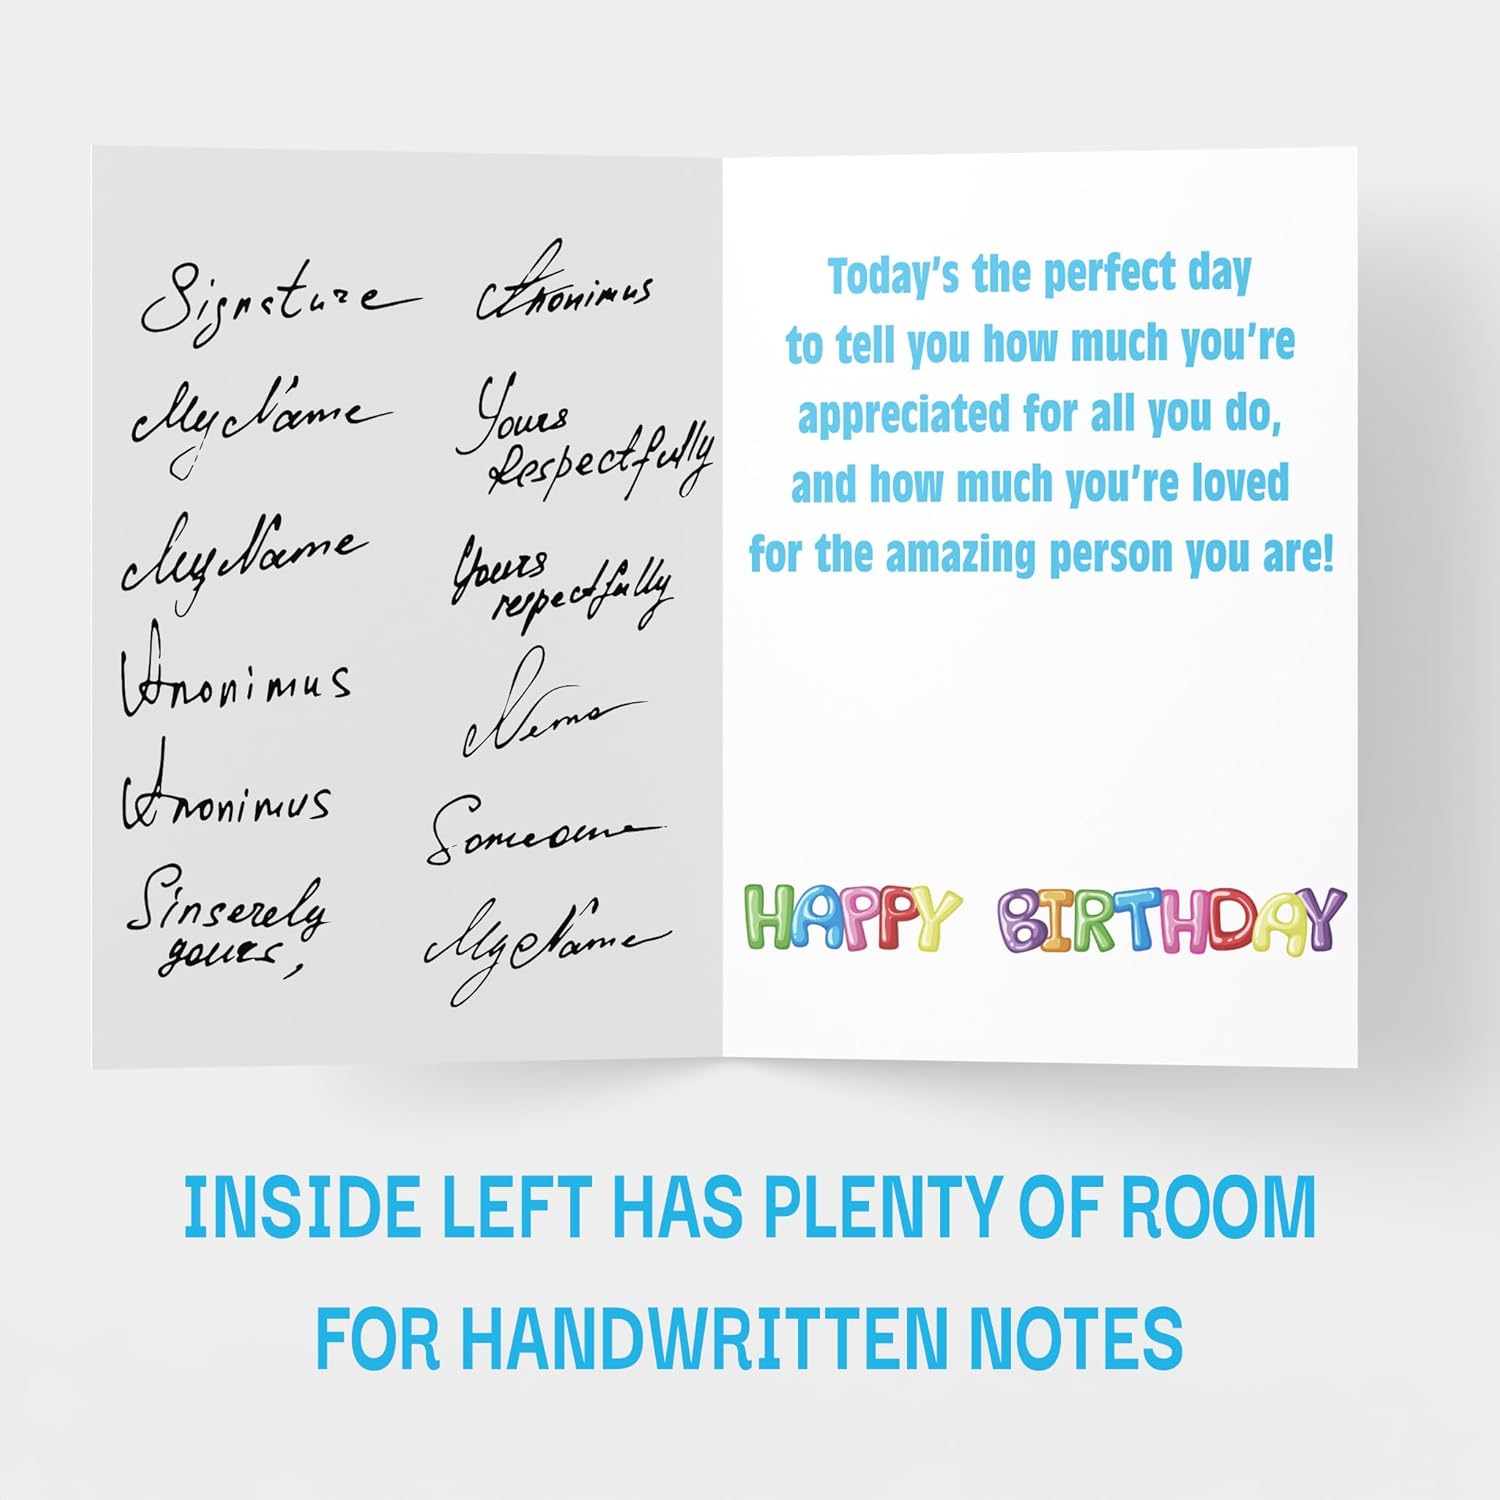 Signature
MyName
MyName
Anonimus
Anonimus
Sinserely
yours,
Anonimus
Yours
Respectfully
Yours
respectfully
Nemo
Someone
MyName
Today's the perfect day
to tell you how much you're
appreciated for all you do,
and how much you're loved
for the amazing person you are!
HAPPY BIRTHDAY
INSIDE LEFT HAS PLENTY OF ROOM
FOR HANDWRITTEN NOTES